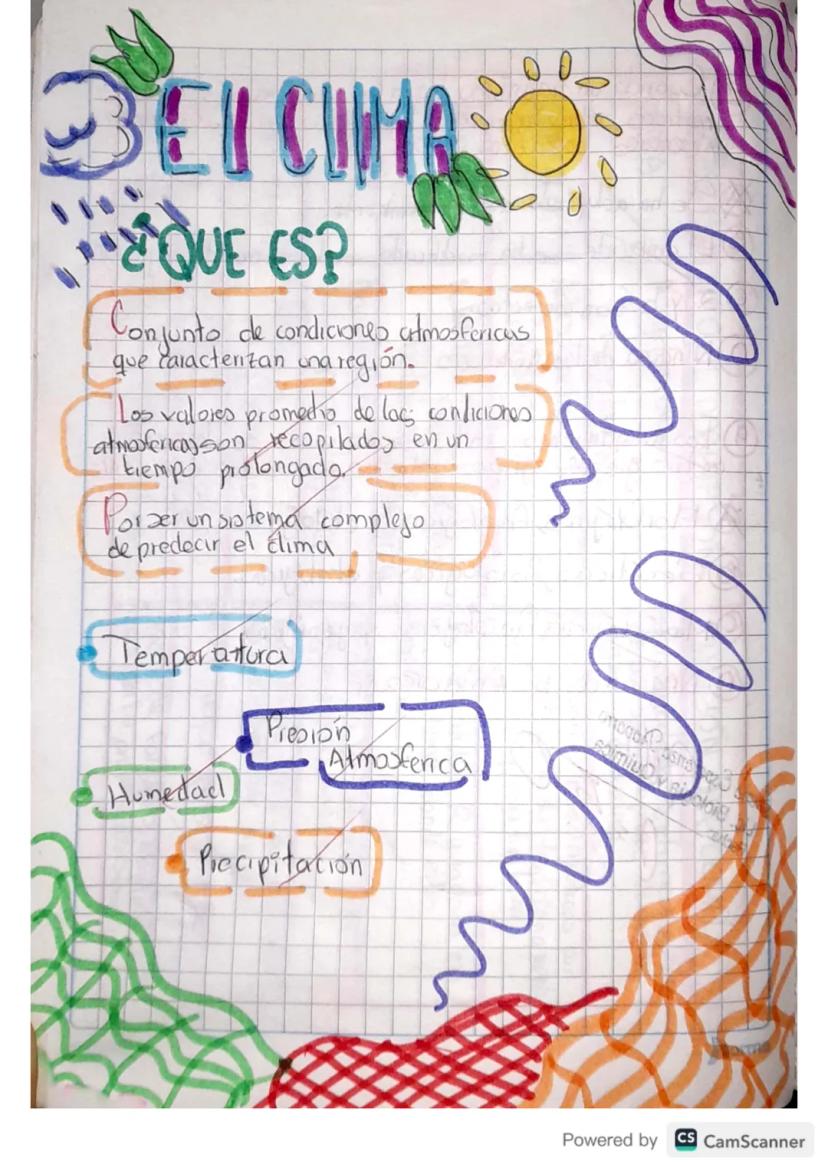 El CLIMA
¿QUE ES?
Conjunto de condiciones atmosfericas
que caracterizan una región.
Los valores promedio de las condiciones
atmosfericas son recopilados en un
tiempo prolongado.
Por ser un sistema complejo
de predecir el clima
Temperatura
Presión
Atmosferica
Humedad
Precipitación
Powered by CS CamScanner